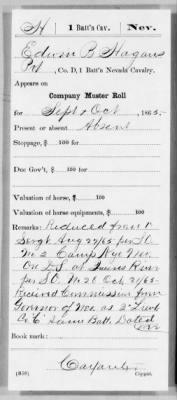 H | 1 Batt'n Cav. | Nev.
Edwin B Hagans
Pvt, Co. D, 1 Batt'n Nevada Cavalry.
Appears on
Company Muster Roll
for Sept & Oct, 1865.
Present or absent Absent
Stoppage, $ 100 for
Due Gov't, $ 100 for
Valuation of horse, $ 100
Valuation of horse equipments, $ 100
Remarks: Reduced from
Sergt Aug 27/65 per S.O.
No 2 Camp Nye Nev.
On D.S. at Quinns River
per S.O. No 28 Oct 21/65-
Recieved Commission from
Governor of Nev. as 2" Lieut
Co "C" Same Batt. Dated
Book mark:
(858) Copyist.